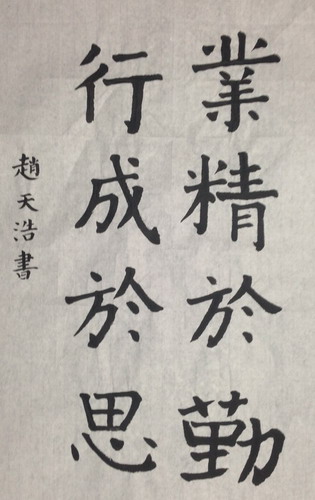 業精於勤
行成於思
趙天浩書